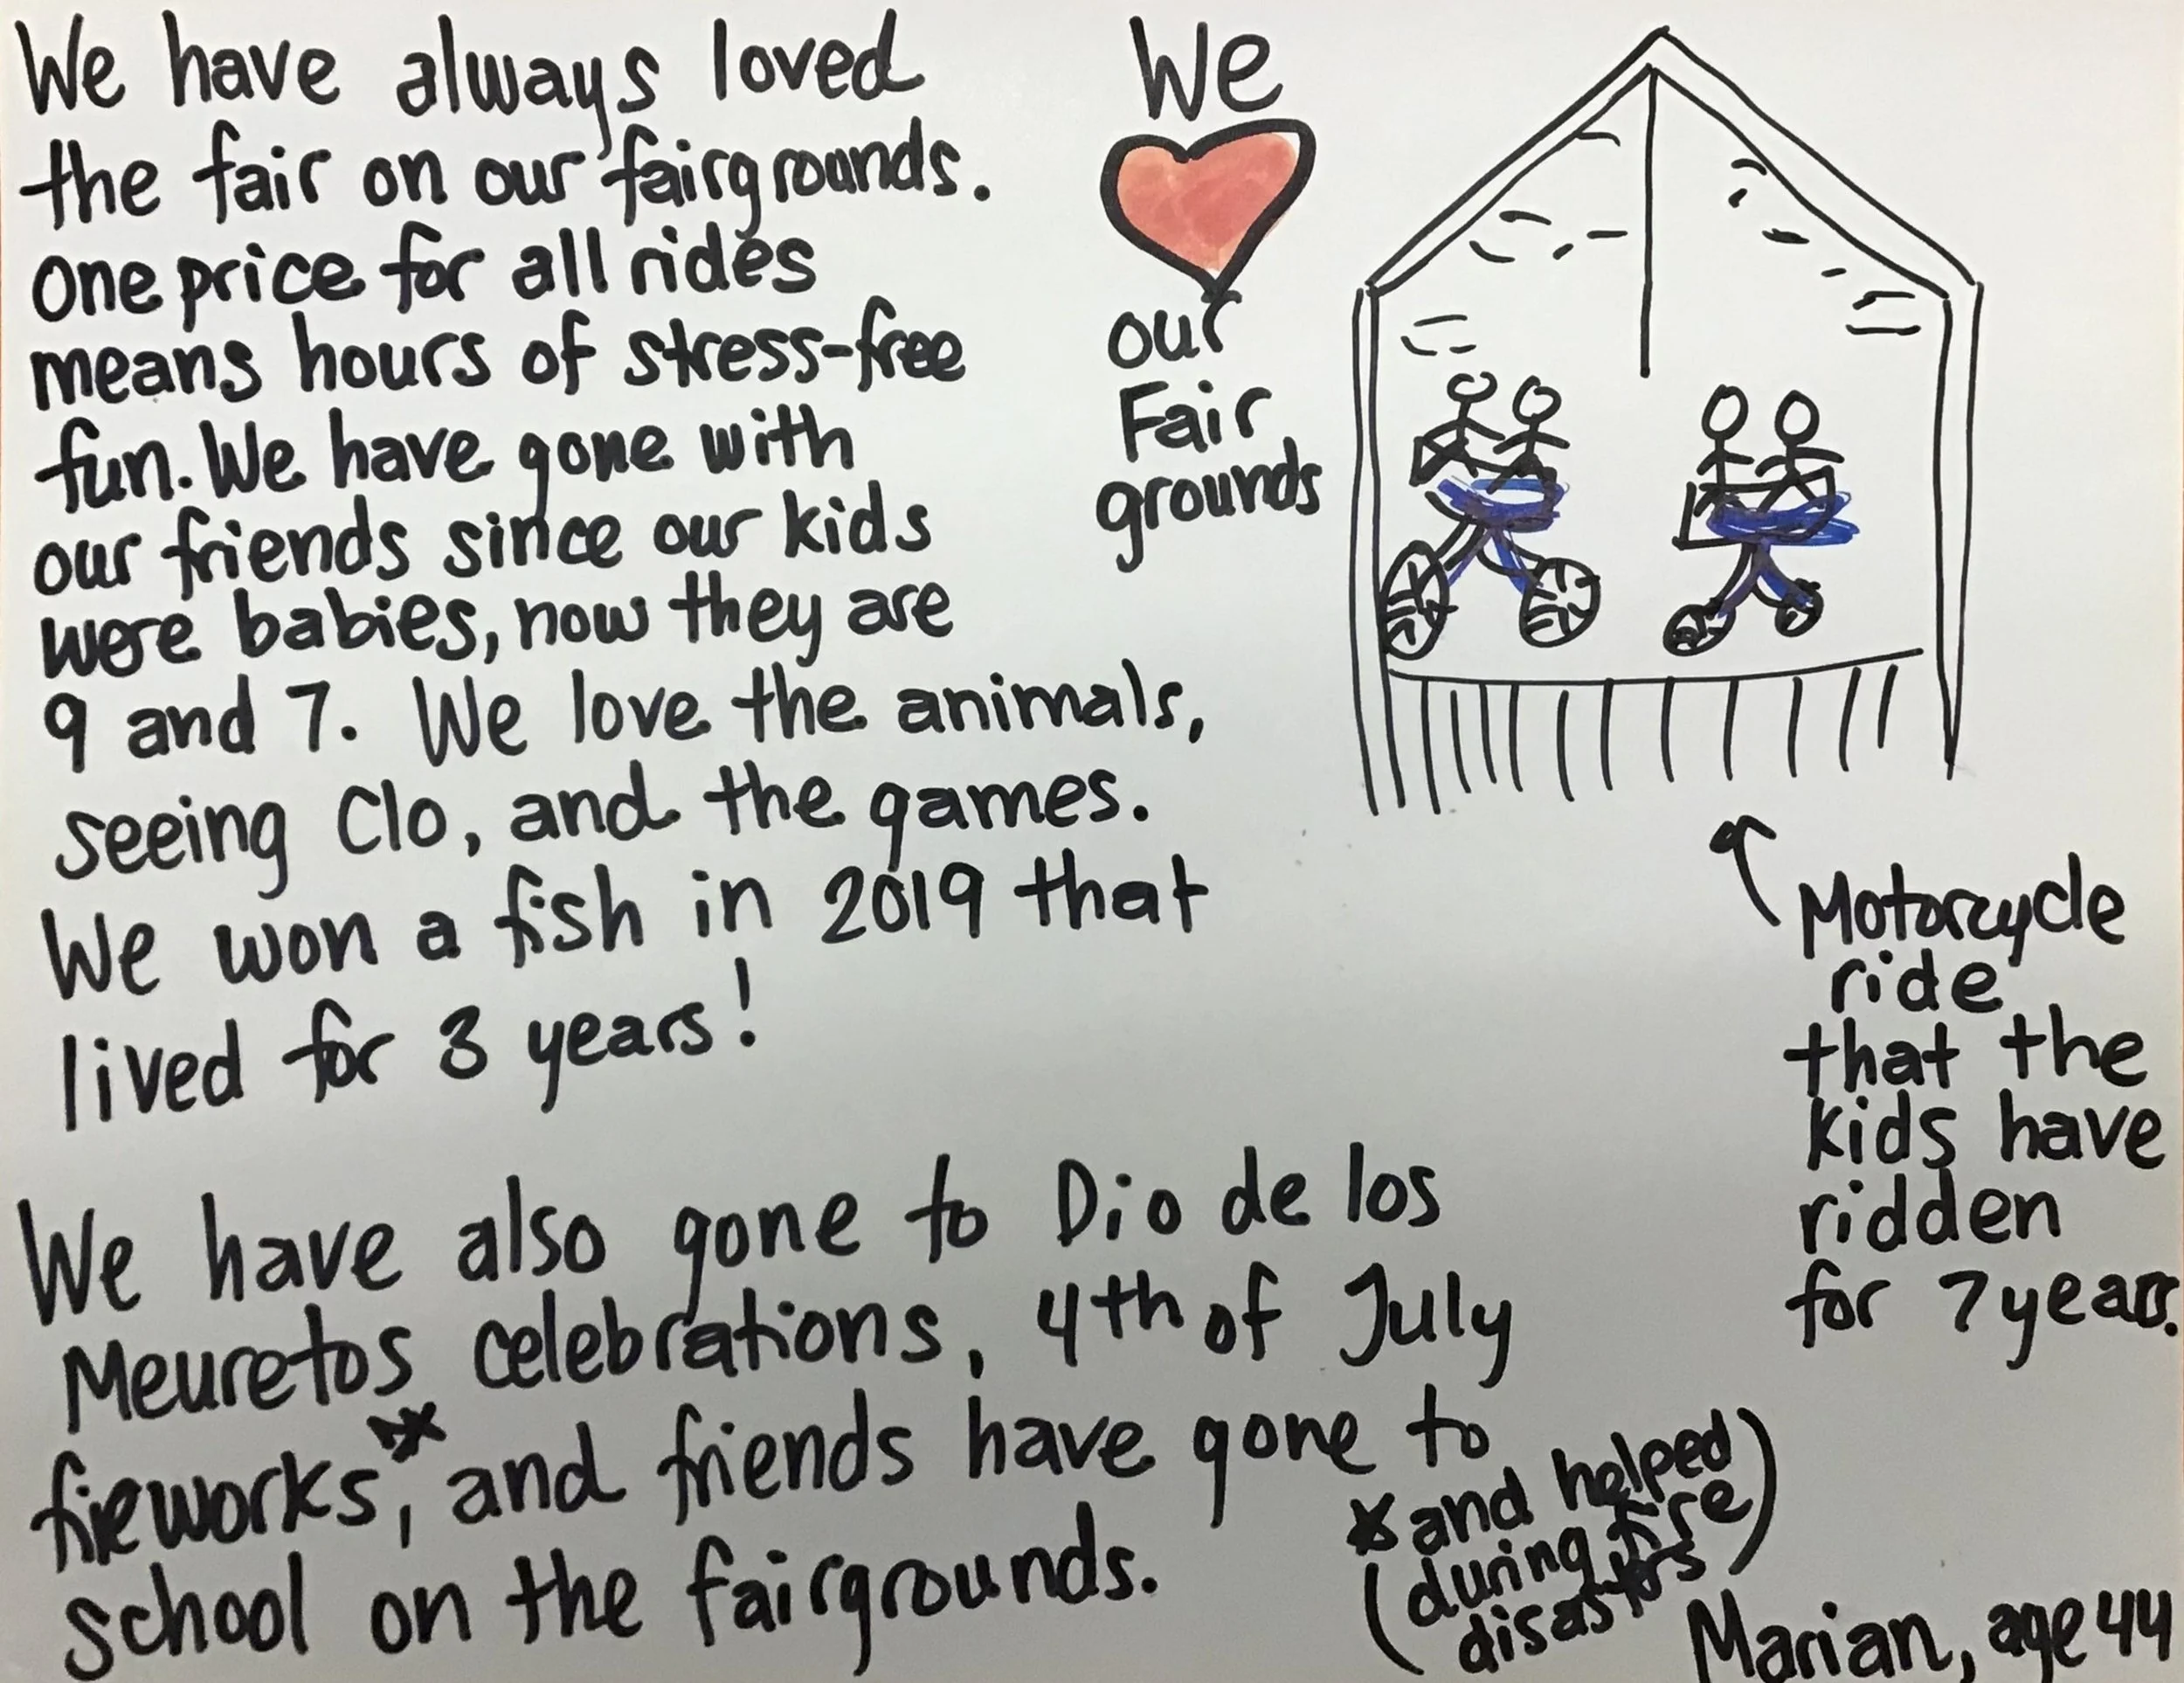 We have always loved
the fair on our fairgrounds.
One price for all rides
means hours of stress-free
fun. We have gone with
our friends since our kids
were babies, now they are
9 and 7. We love the animals,
seeing Clo, and the games.
We won a fish in 2019 that
lived for 3 years!
We have also gone to Dio de los
Meuretos celebrations, 4th of July
fireworks*, and friends have gone to
school on the fairgrounds.
We
our
Fair
grounds
Motorcycle
ride
that the
kids have
ridden
for 7 years.
* and helped
(during fire
disasters)
Marian, age 44